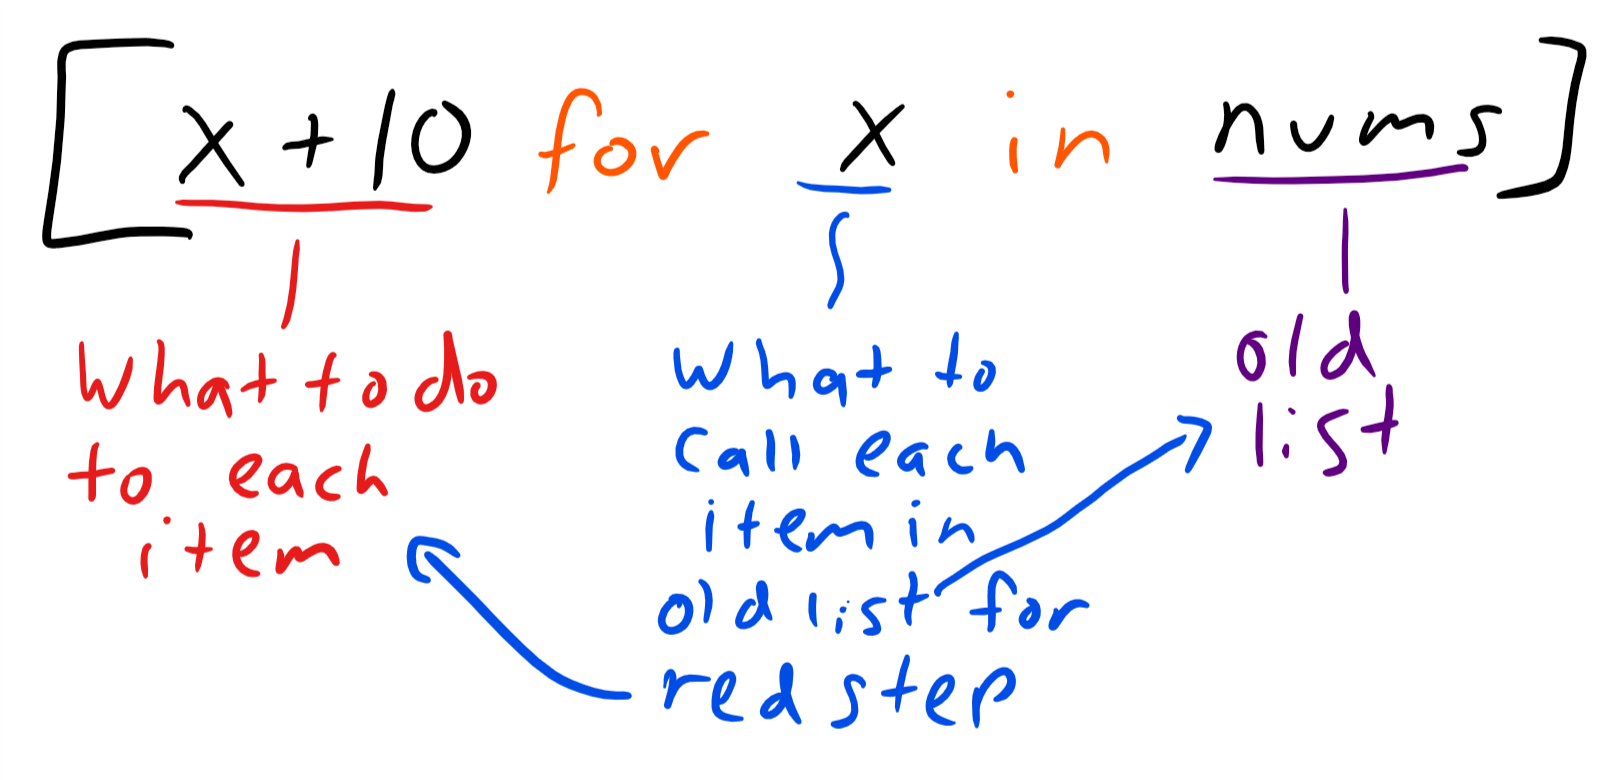 [x+10 for x in nums]
What to do
to each
item
What to
call each
item in
old list for
red step
old
list